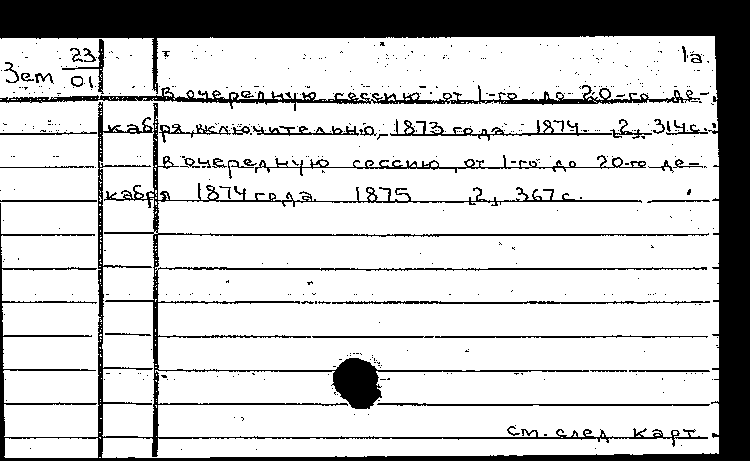 Зем 23/01
1а
В очередную сессию от 1-го до 20-го де-
кабря, включительно, 1873 года. 1874. ,2, 314 с.
В очередную сессию, от 1-го до 20-го де-
кабря 1874 года. 1875. ,2, 367 с.
см. след карт.